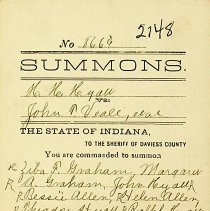 2148
No 8663
SUMMONS.
H. H. Hyatt
vs.
John P. Veale, et al
THE STATE OF INDIANA,
TO THE SHERIFF OF DAVIESS COUNTY
You are commanded to summon
R Ziba F. Graham, Margaret
R A. Graham, John Hyatt
R Bessie Allen, R Helen Allen